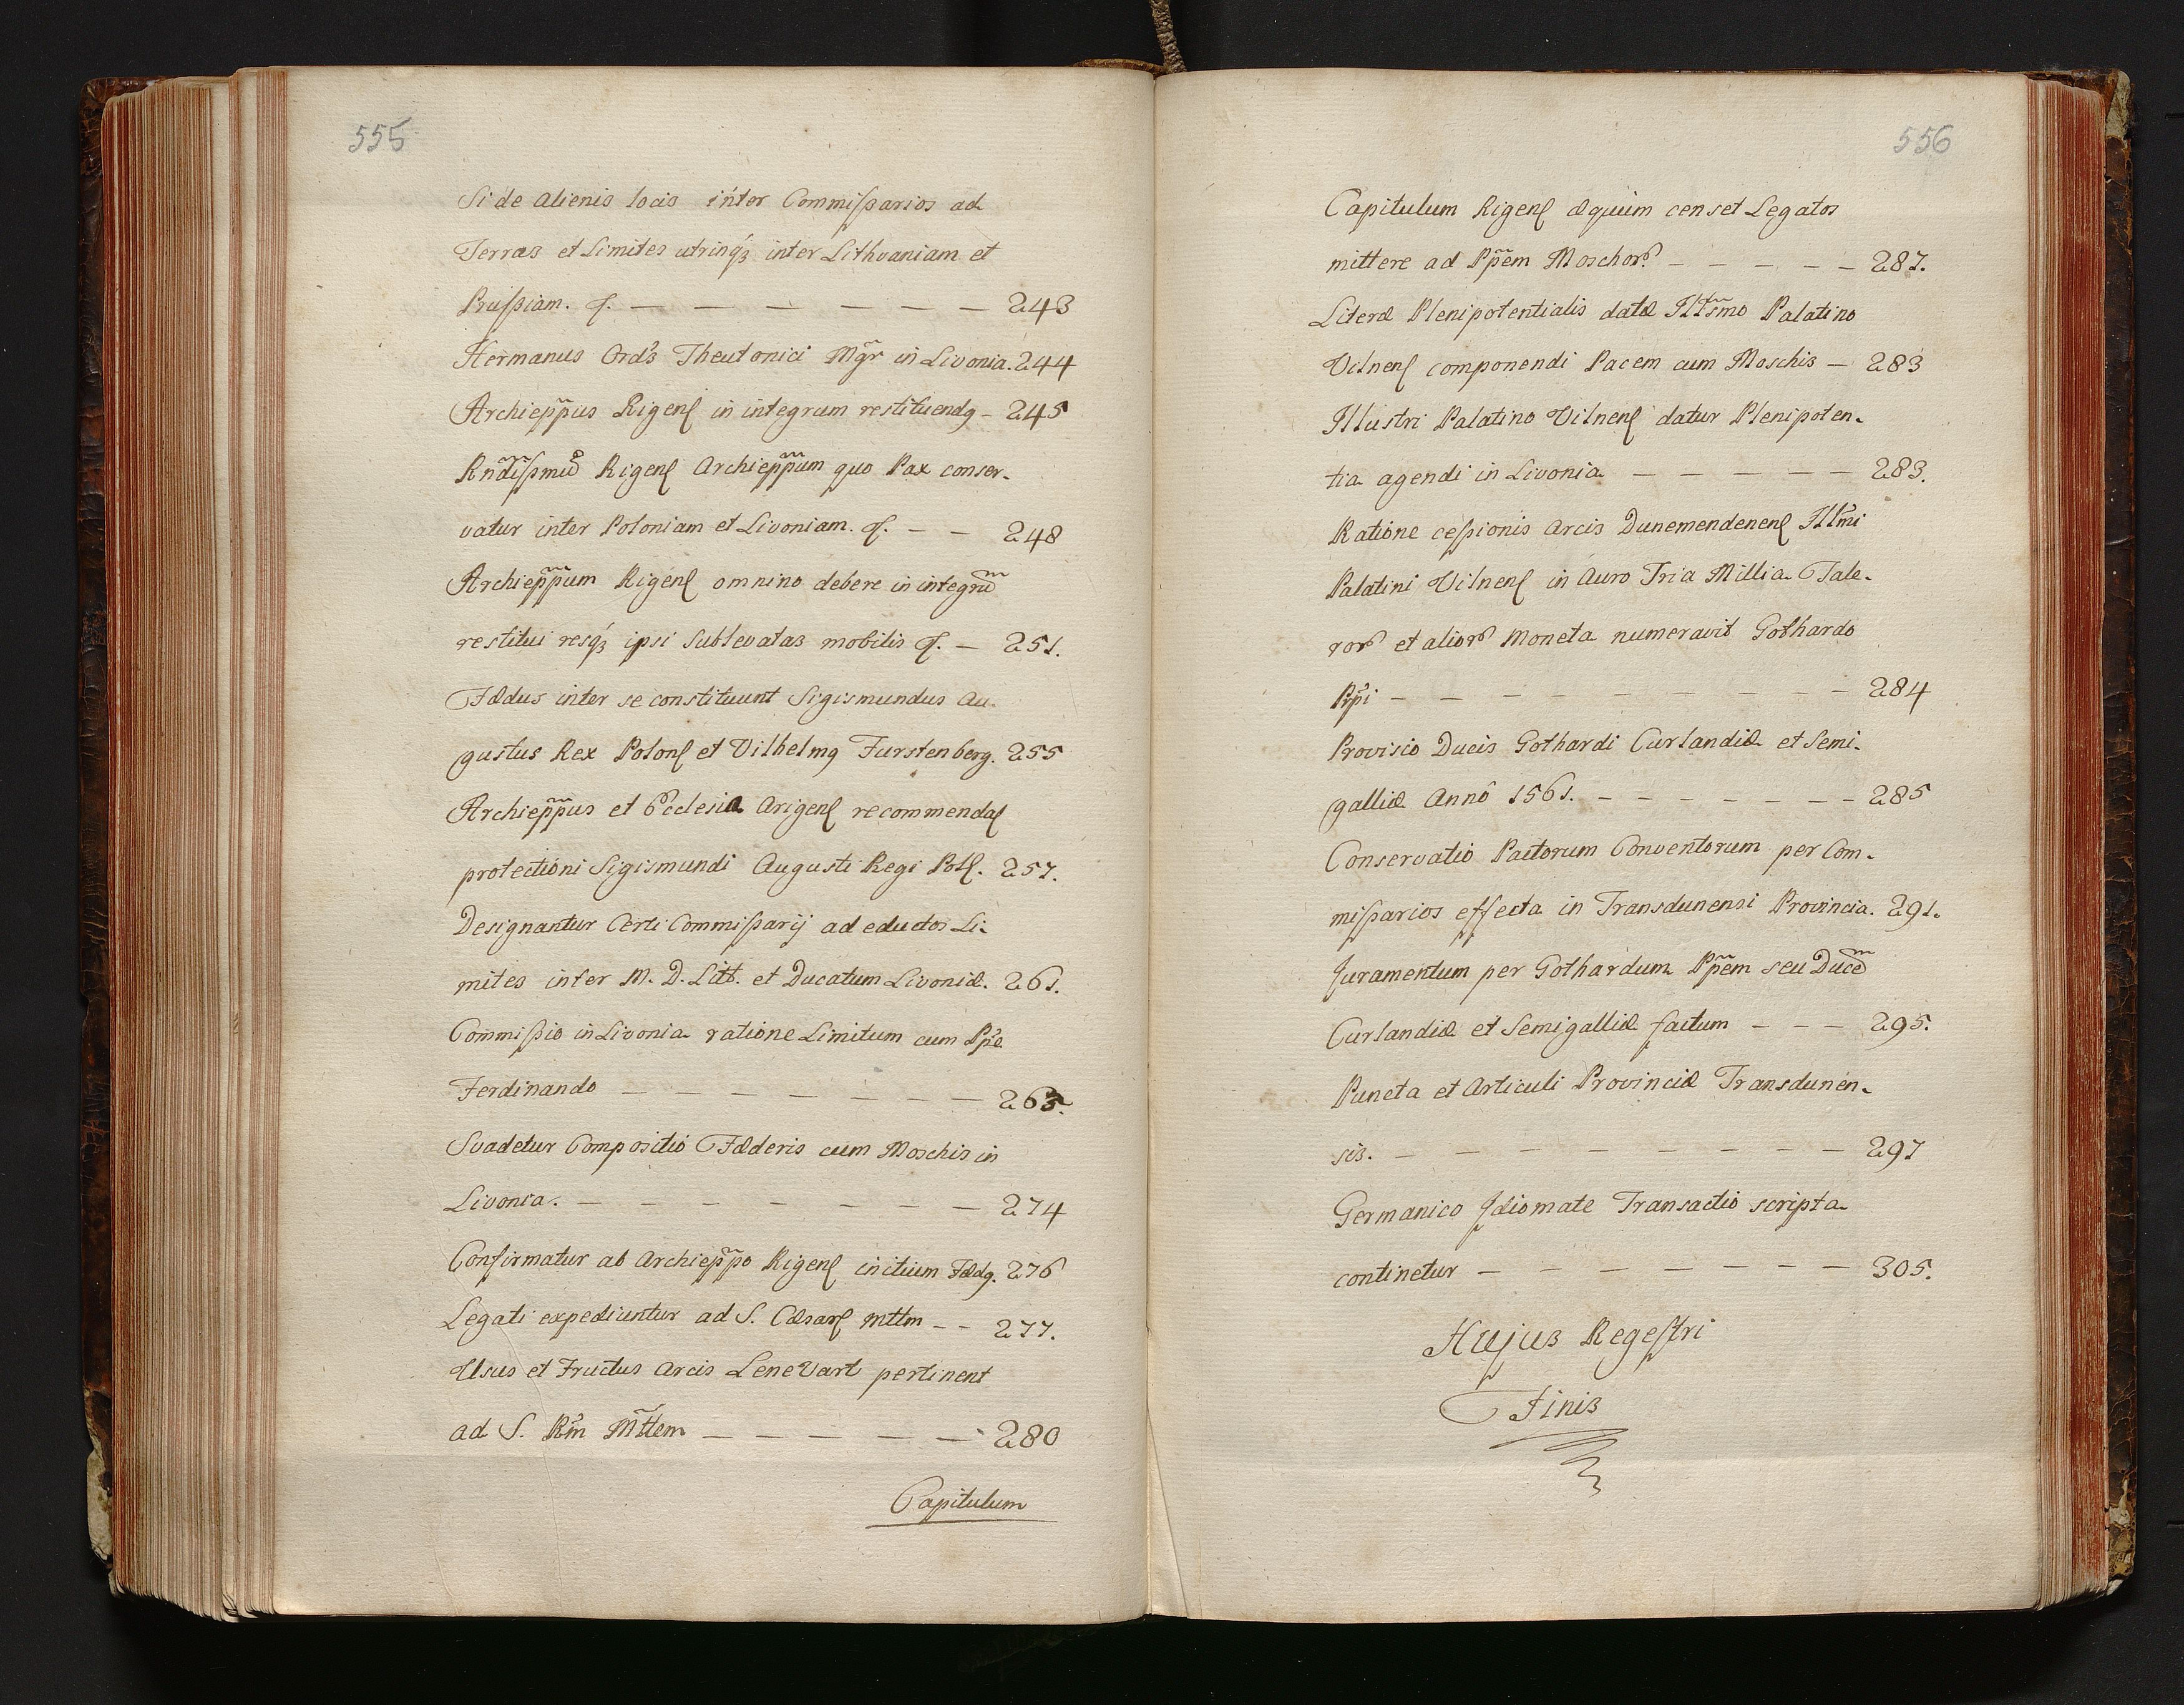 555
Si de alienis locis inter Commissarios ad
Terras et Limites utrinq̃ inter Lithvaniam et
Prussiam. q. — — — — — — — 243
Hermanus Ord̃s Theutonici Mg̃r in Livonia. 244
Archiepp̃us Rigenſ in integrum restituendq — 245
Rñdissmũ Rigenſ Archiepp̃um quo Pax conser-
vatur inter Poloniam et Livoniam. q. — — 248
Archiepp̃um Rigenſ omnino debere in integrũ
restitui resq̃ ipsi sublevatas mobilis q. — 251.
Fædus inter se constituunt Sigismundus Au-
gustus Rex Polonſ et Vilhelmq Furstenberg. 255
Archiepp̃us et Ecclesia Arigenſ recommendaſ
protectioni Sigismundi Augusti Regi Polſ. 257.
Designantur Certi Commissarij ad eductos Li-
mites inter M. D. Litt. et Ducatum Livoniæ. 261.
Commissio in Livonia ratione Limitum cum Pp̃e
Ferdinando — — — — — — — 265.
Svadetur Compositio Fæderis cum Moschis in
Livonia. — — — — — — — 274
Confirmatur ab Archiepp̃o Rigenſ initium Fædq. 276
Legati expediuntur ad S. Cæsarſ mttm — — 277.
Usus et Fructus Arcis Lenevart pertinent
ad S. Rm̃ Mt̃tem — — — — — — 280
Capitulum
556
Capitulum Rigenſ æquum censet Legatos
mittere ad Pp̃em Moschorꝝ. — — — — — 287.
Literæ Plenipotentialis datæ Illr̃smo Palatino
Vilnenſ componendi Pacem cum Moschis — 283
Illustri Palatino Vilnenſ datur Plenipoten-
tia agendi in Livonia — — — — — 283.
Ratione cessionis Arcis Dunemendenenſ Illm̃i
Palatini Vilnenſ in Auro Tria Millia Tale-
rorꝝ et aliorꝝ Moneta numeravit Gothardo
Pp̃i — — — — — — — — — 284
Provisio Ducis Gothardi Curlandiæ et Semi-
galliæ Annô 1561. — — — — — — — 285
Conservatio Pactorum Conventorum per Com-
missarios effecta in Transdunensi Provincia. 291.
Juramentum per Gothardum Pp̃em seu Ducẽ
Curlandiæ et Semigalliæ factum — — — 295.
Puncta et Articuli Provinciæ Transdunen-
sis. — — — — — — — — — 297
Germanico Idiomate Transactio scripta
continetur — — — — — — — 305.
Hujus Regestri
Finis